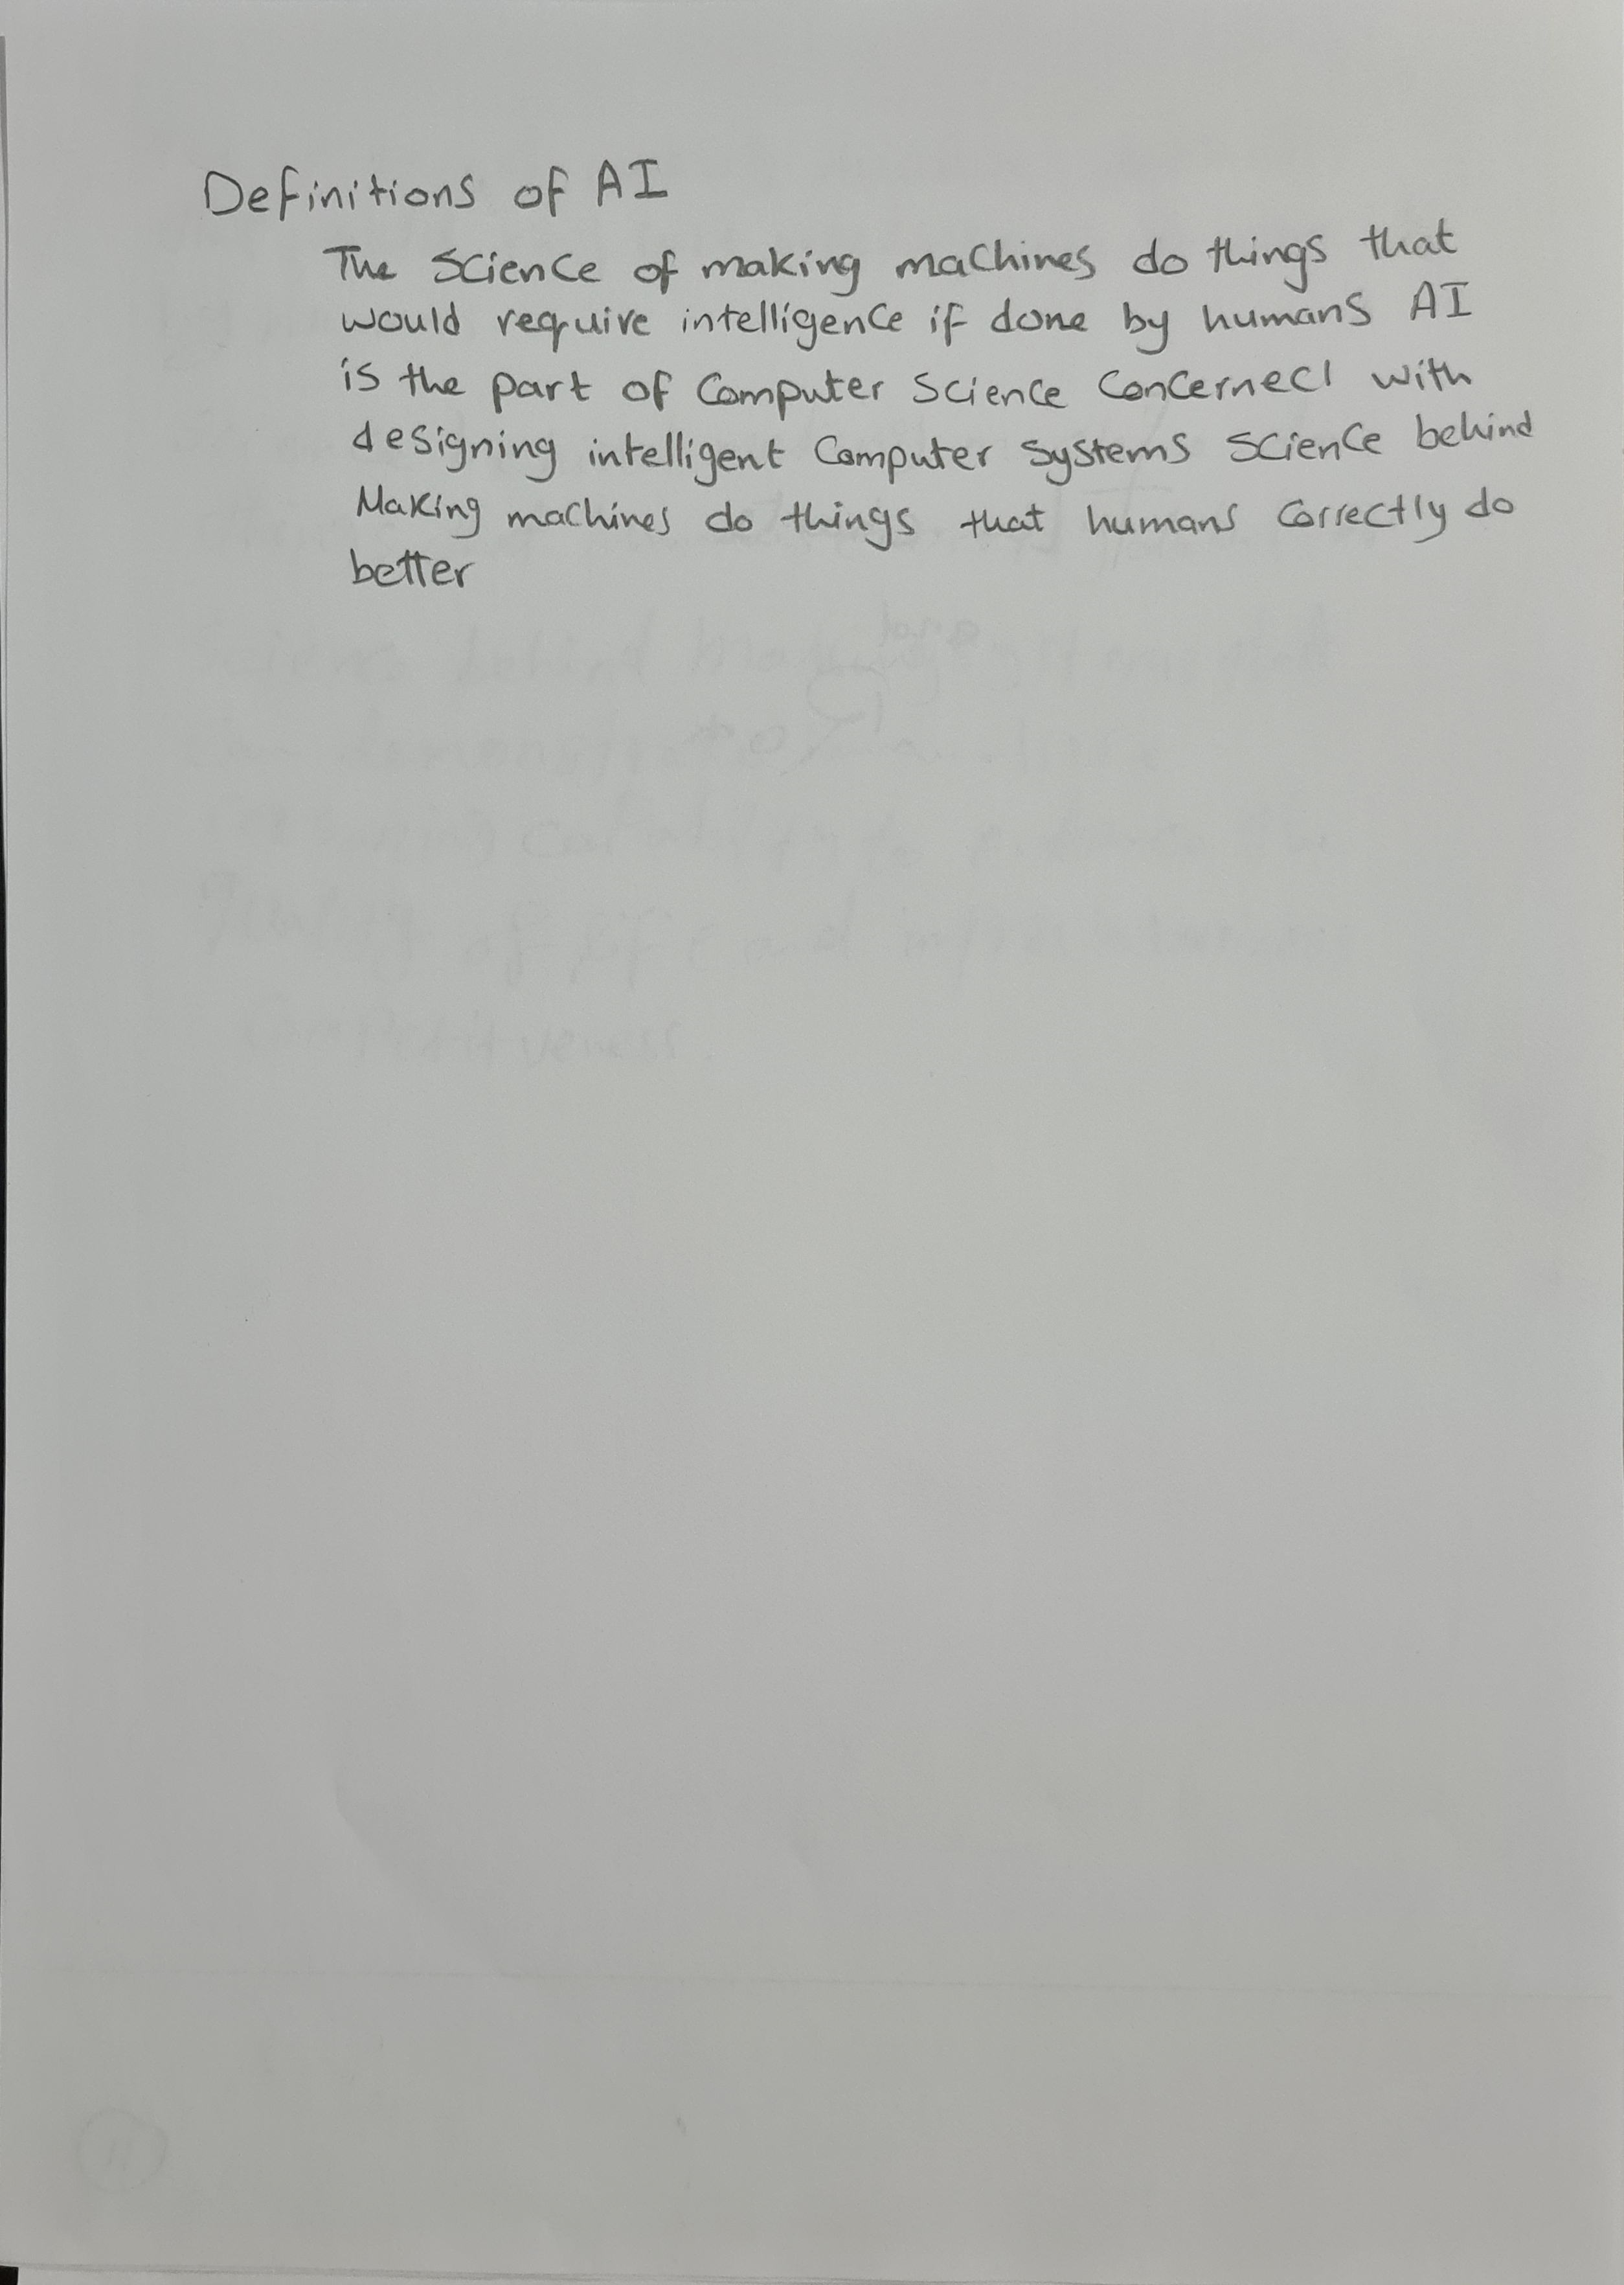 Definitions of AI
The Science of making machines do things that
would require intelligence if done by humans AI
is the part of Computer Science Concerned with
designing intelligent Computer Systems Science behind
Making machines do things that humans Correctly do
better